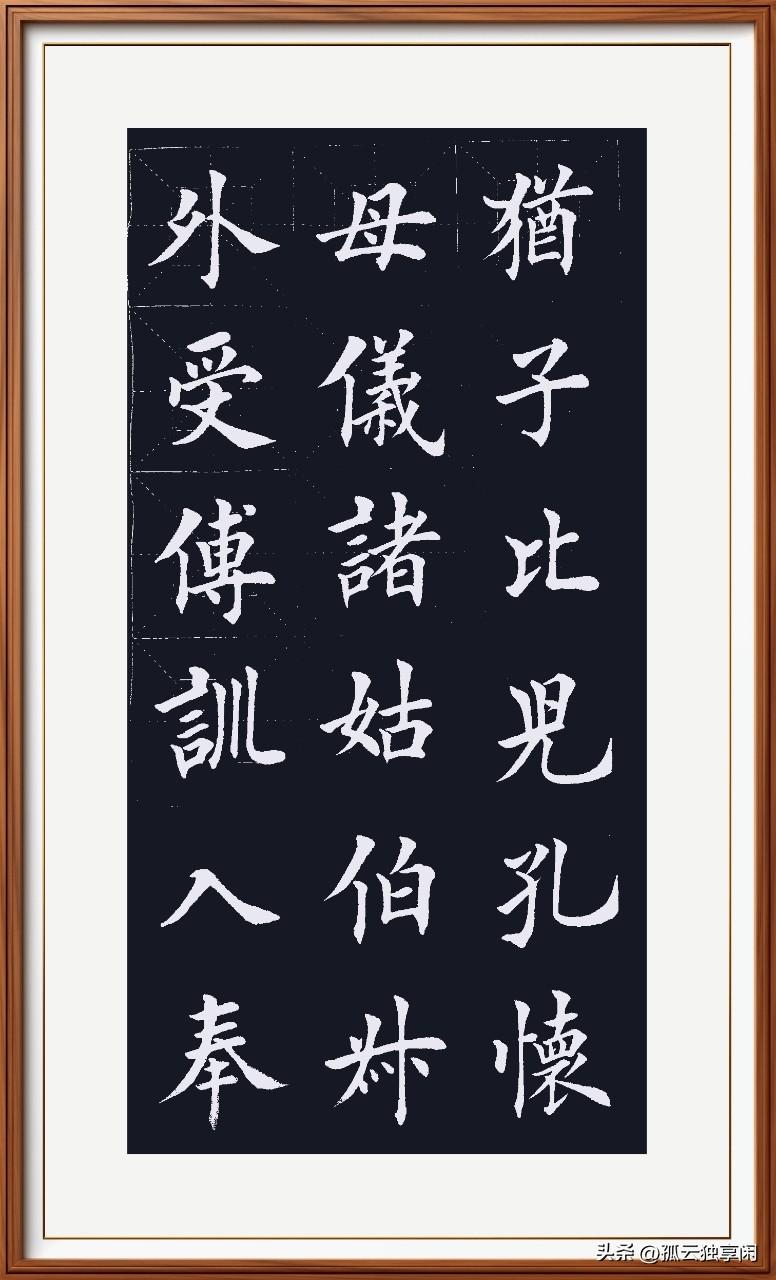 外受傅訓入奉
母儀諸姑伯叔
猶子比兒孔懷
头条 @孤云独享闲